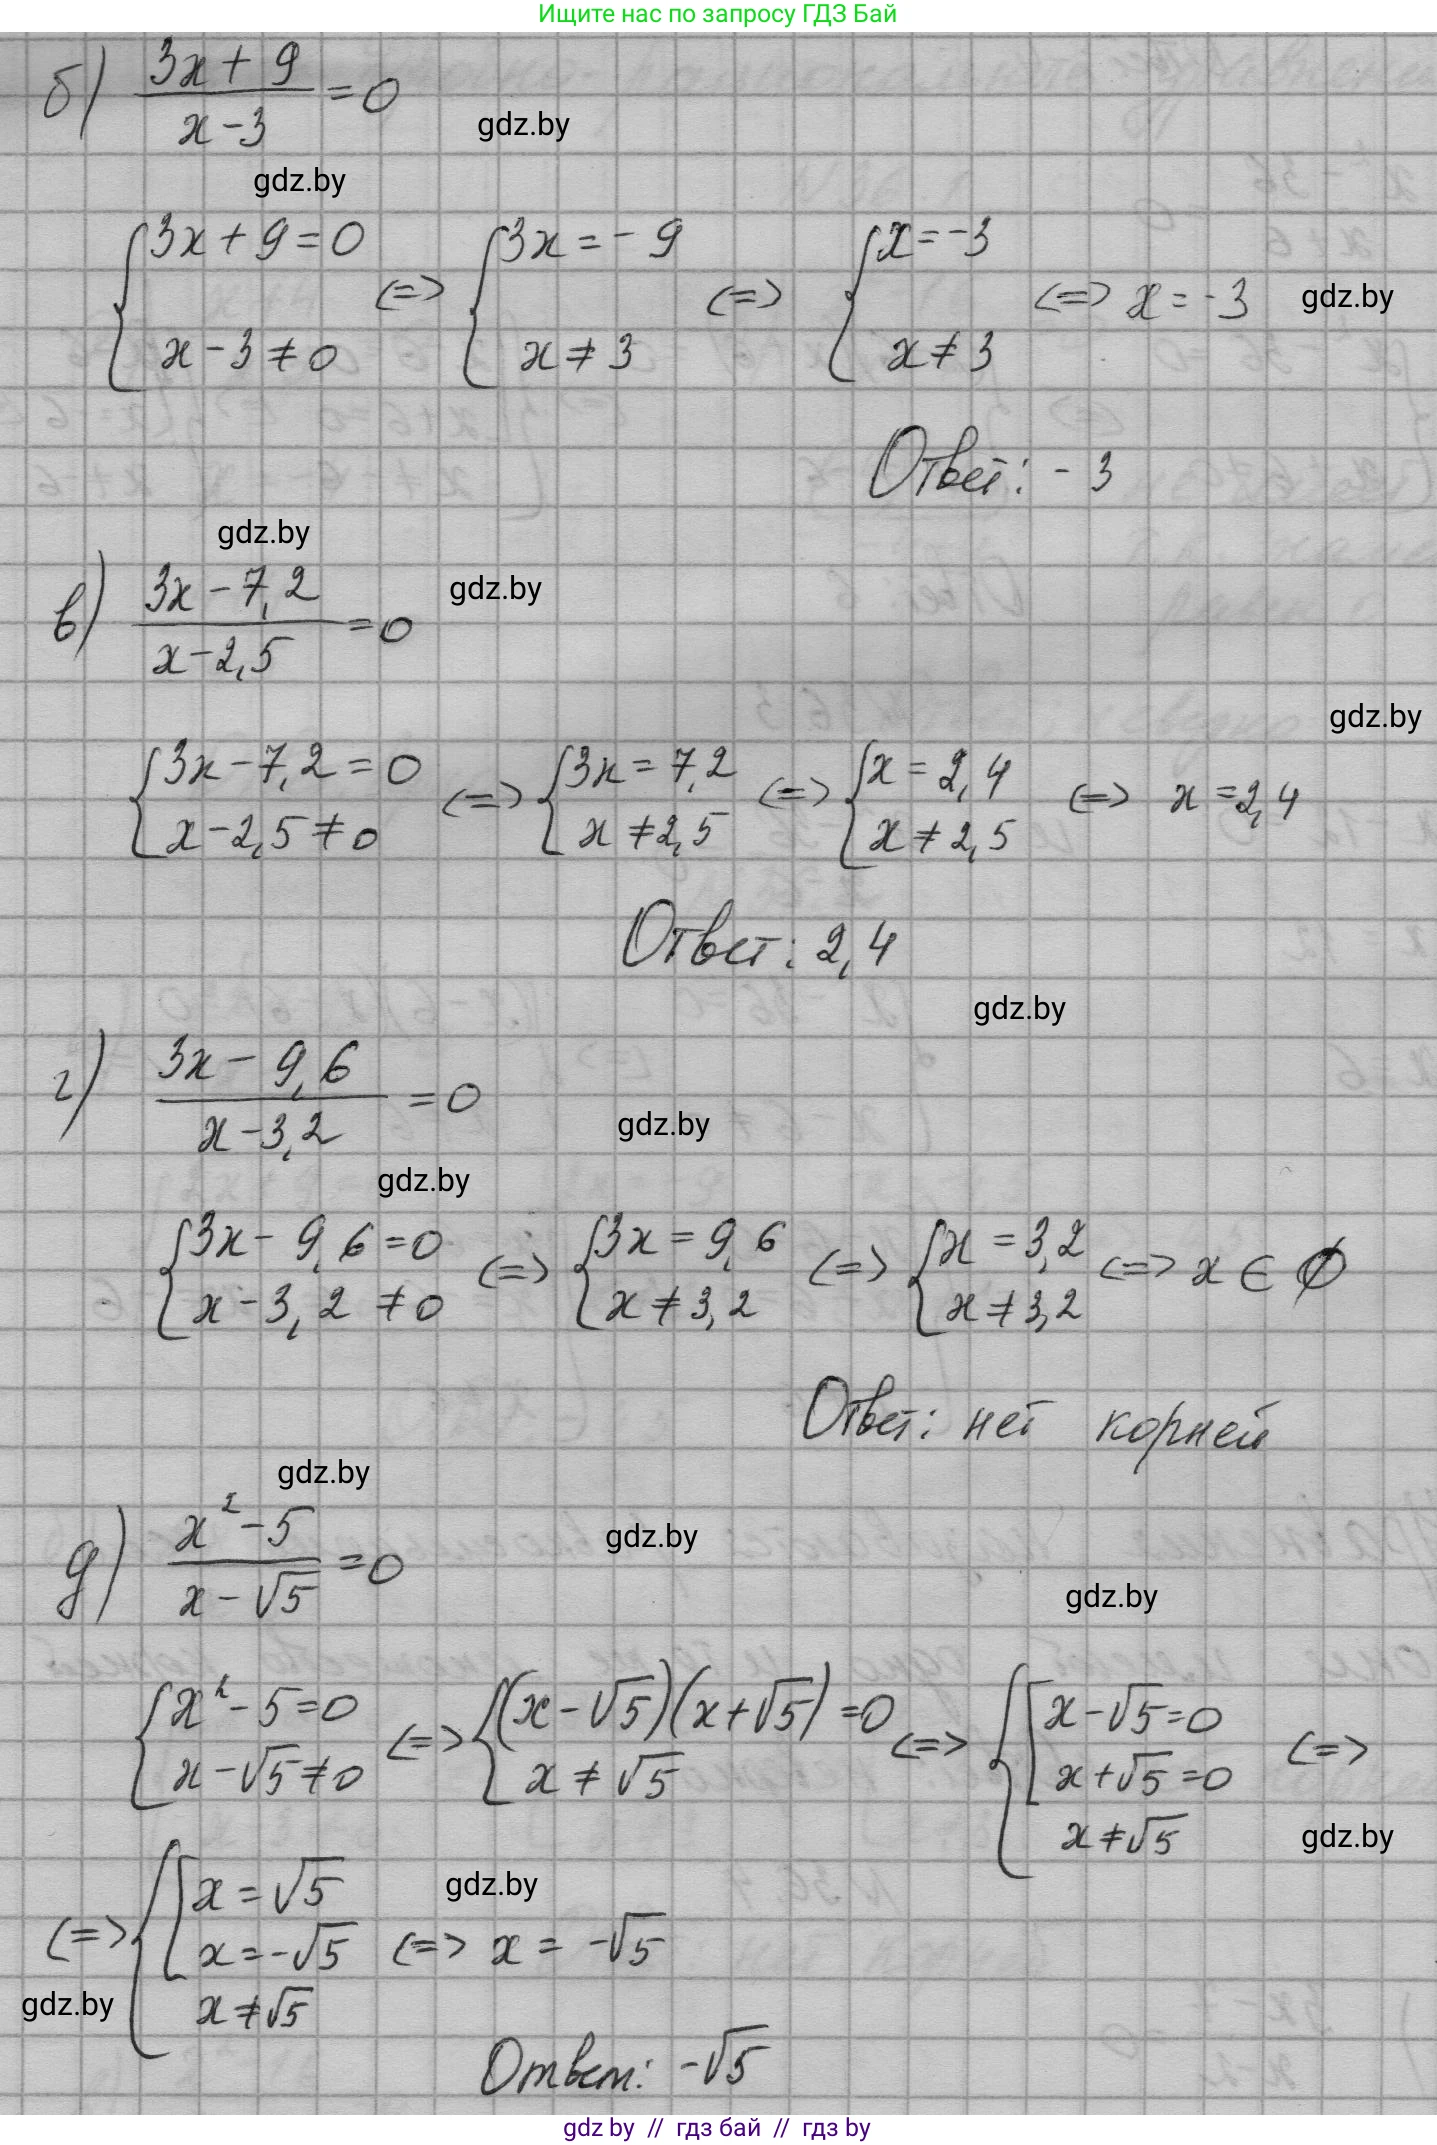 Ищите нас по запросу ГДЗ Бай
б) (3x + 9)/(x - 3) = 0
gdz.by
gdz.by
{3x + 9 = 0; x - 3 ≠ 0 <=> {3x = -9; x ≠ 3 <=> {x = -3; x ≠ 3 <=> x = -3
gdz.by
Ответ: -3
gdz.by
в) (3x - 7,2)/(x - 2,5) = 0
gdz.by
gdz.by
{3x - 7,2 = 0; x - 2,5 ≠ 0 <=> {3x = 7,2; x ≠ 2,5 <=> {x = 2,4; x ≠ 2,5 <=> x = 2,4
Ответ: 2,4
gdz.by
г) (3x - 9,6)/(x - 3,2) = 0
gdz.by
gdz.by
{3x - 9,6 = 0; x - 3,2 ≠ 0 <=> {3x = 9,6; x ≠ 3,2 <=> {x = 3,2; x ≠ 3,2 <=> x ∈ ∅
Ответ: нет корней
gdz.by
д) (x² - 5)/(x - √5) = 0
gdz.by
gdz.by
{x² - 5 = 0; x - √5 ≠ 0 <=> {(x - √5)(x + √5) = 0; x ≠ √5 <=> {[x - √5 = 0; x + √5 = 0; x ≠ √5 <=>
gdz.by
<=> {[x = √5; x = -√5; x ≠ √5 <=> x = -√5
gdz.by
gdz.by
Ответ: -√5
gdz by // гдз бай // гдз by